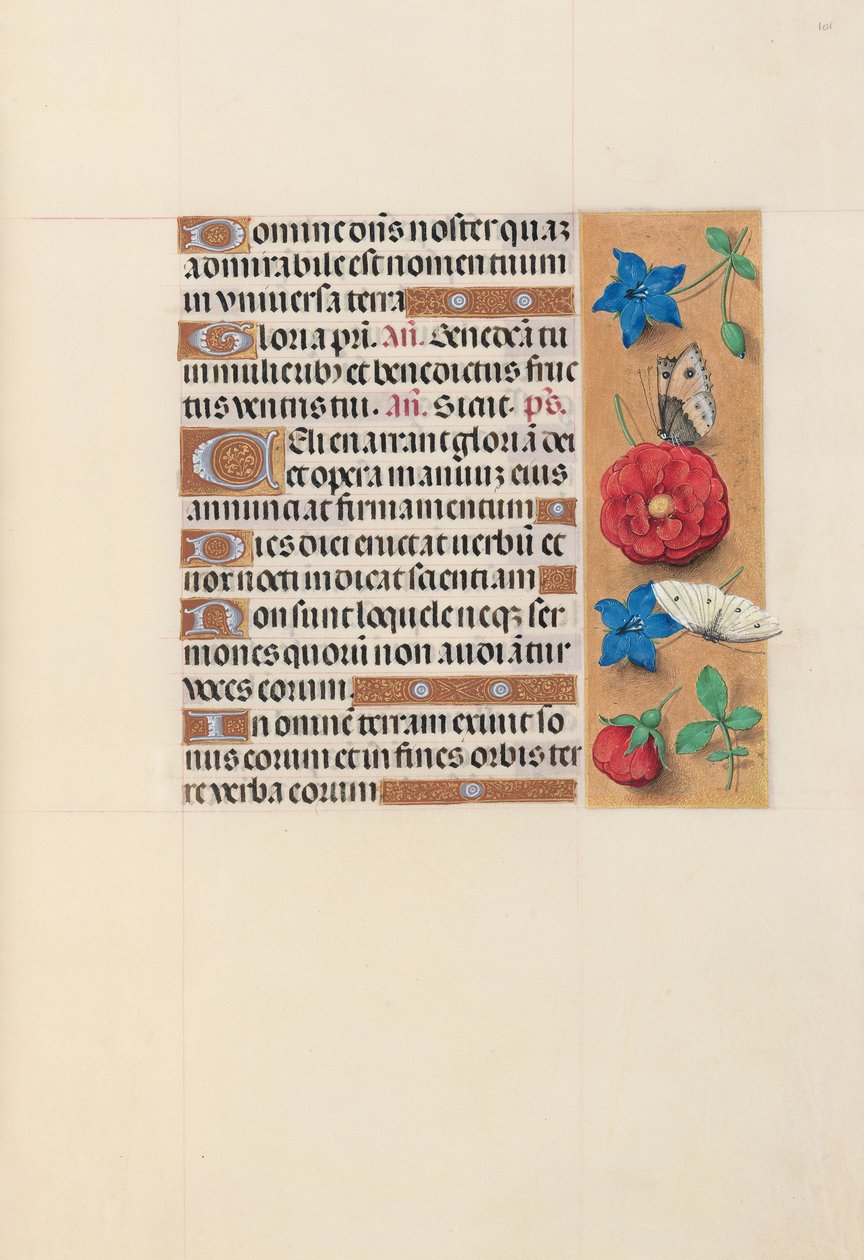 101
Domine dn̄s noster quaꝫ
admirabile est nomen tuum
in vniuersa terra
Gloria pr̄i. An̄. Benedcā tu
in mulierib⁹ et benedictus fruc
tus ventris tui. An̄. Sicut. p̄s.
Celi enarrant gloriā dei
et opera manuuꝫ eius
annunciat firmamentum
Dies diei eructat uerbū et
nox nocti indicat scientiam
Non sunt loquele neqꝫ ser
mones quorū non audiātur
voces eorum.
In omnē terram exiuit so
nus eorum et in fines orbis ter
re verba eorum